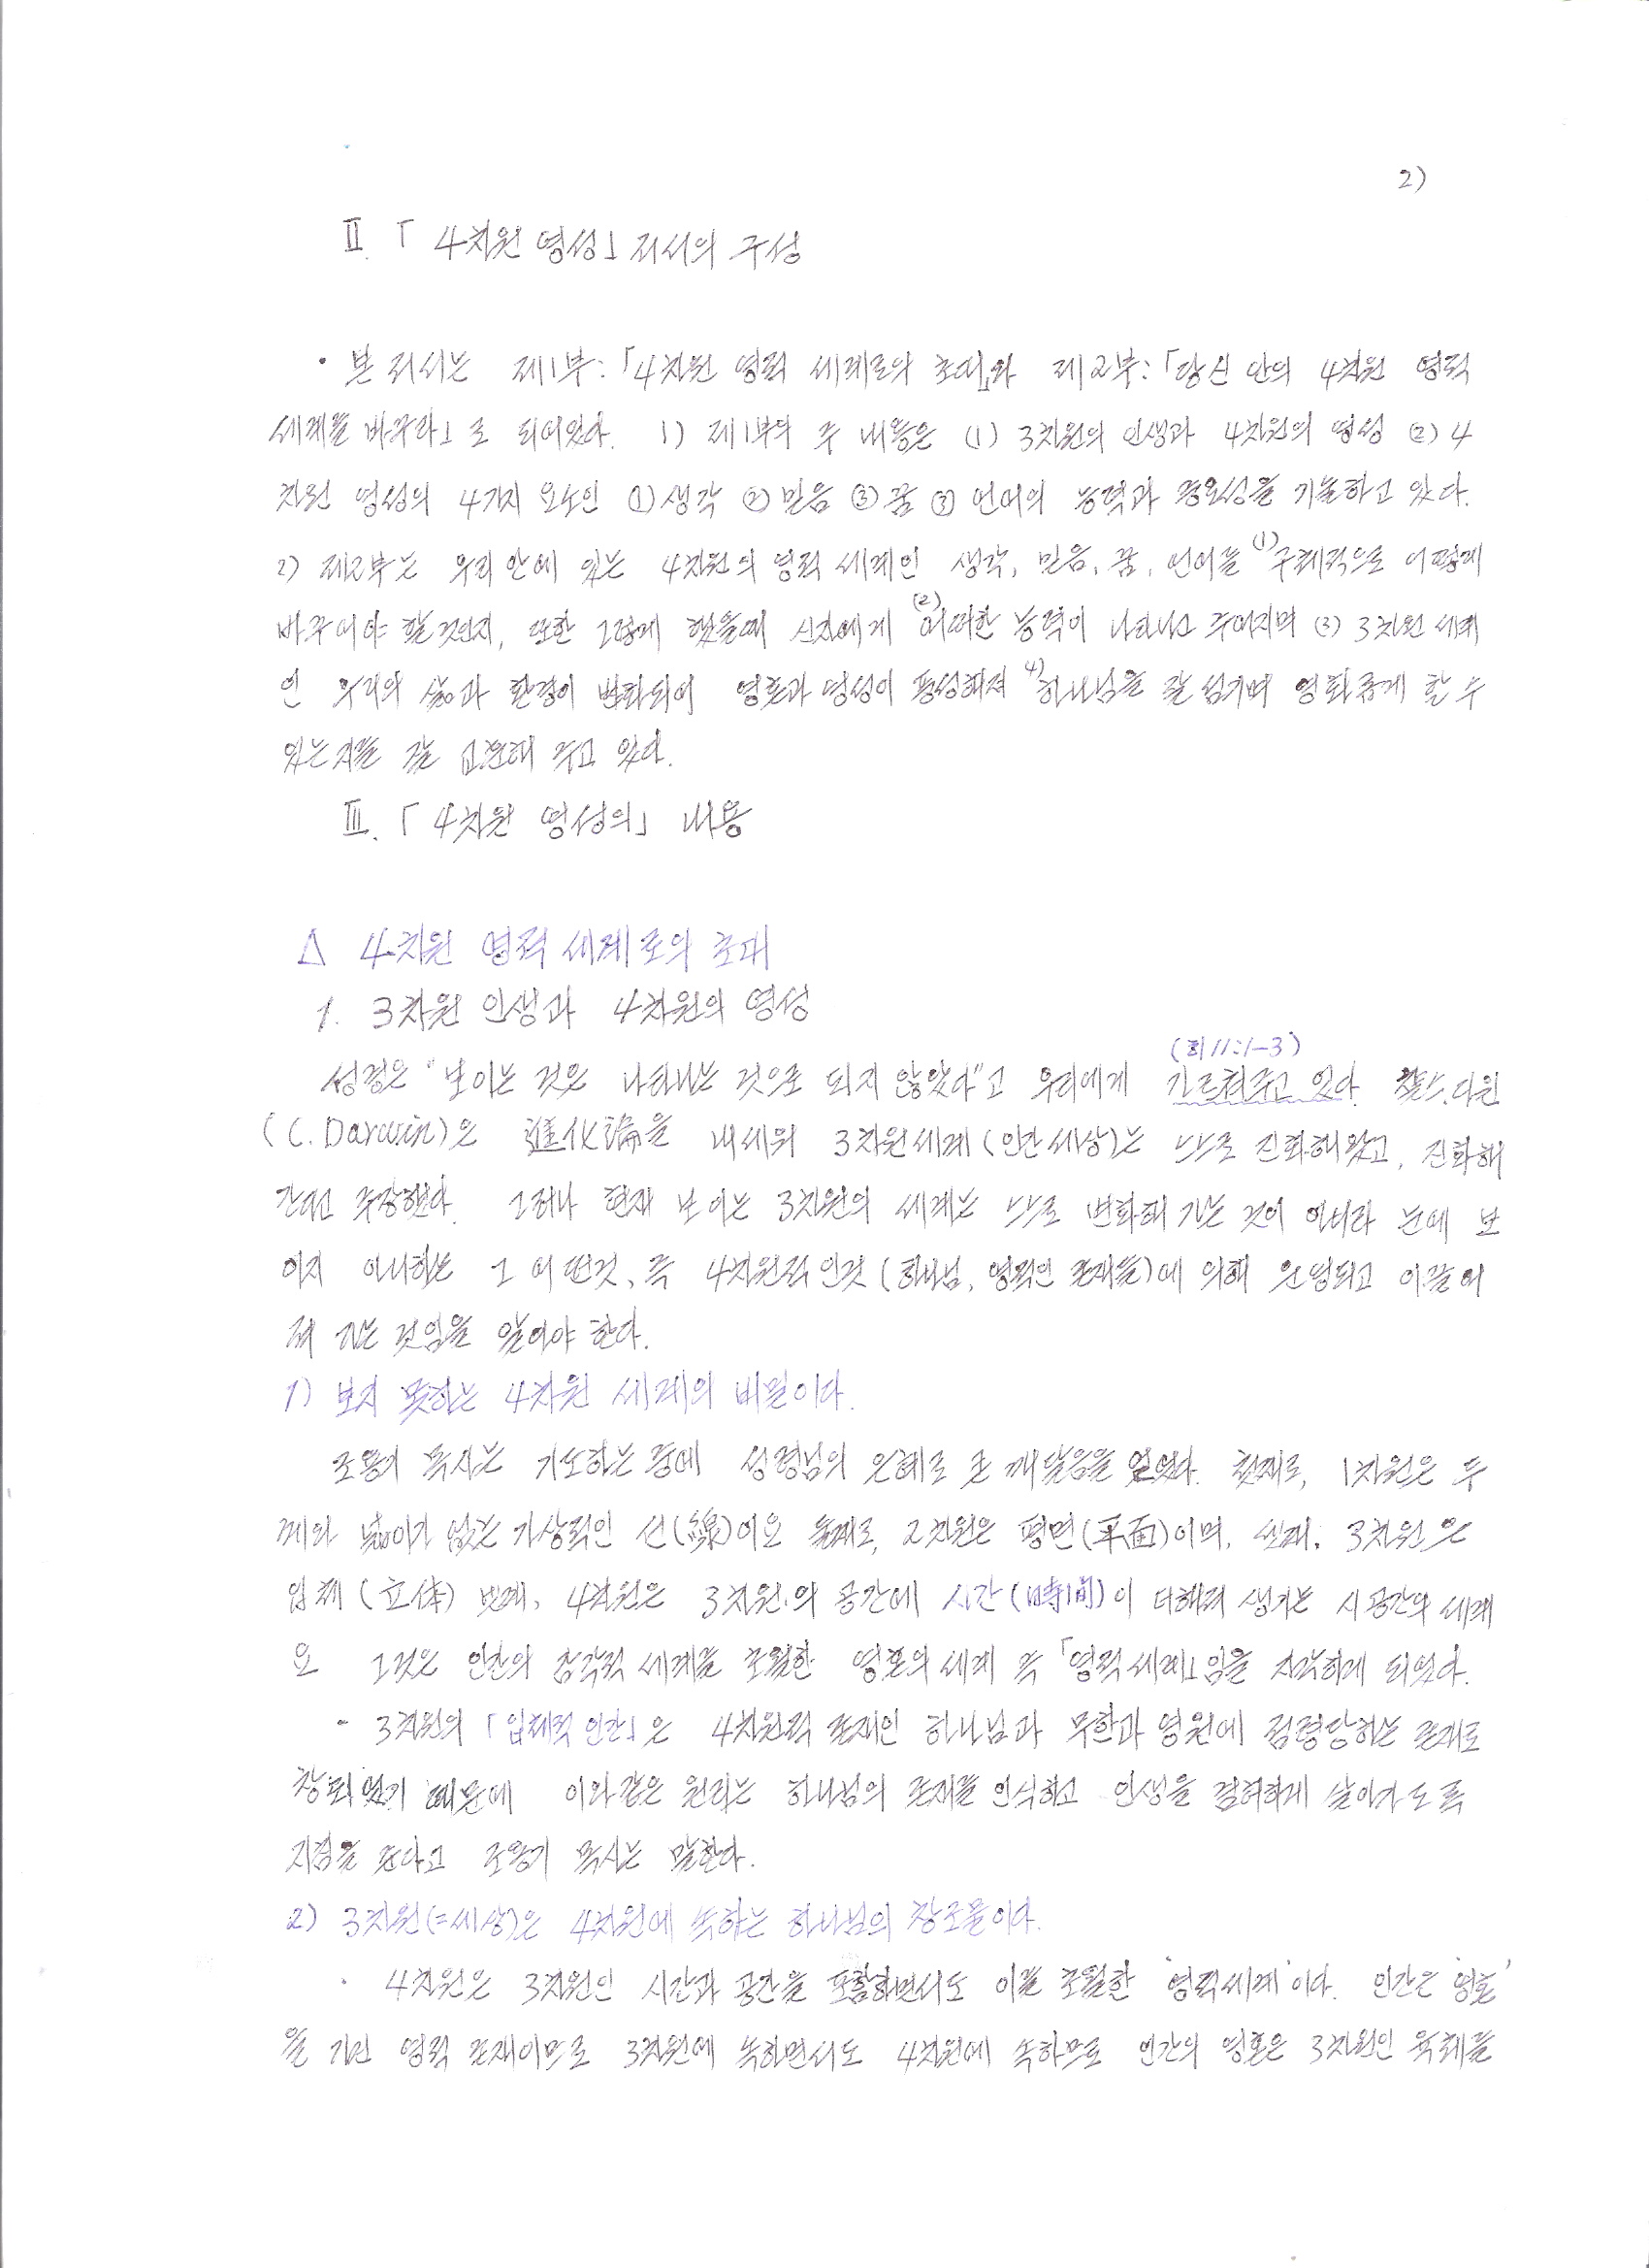 2)
Ⅱ. 「4차원 영성」 저서의 구성
· 본 저서는 제1부:「4차원 영적 세계로의 초대」와 제2부:「당신 안의 4차원 영적
세계를 바꾸라」로 되어있다. 1) 제1부의 주 내용은 (1) 3차원의 인생과 4차원의 영성 (2) 4
차원 영성의 4가지 요소인 ① 생각 ② 믿음 ③ 꿈 ③ 언어의 능력과 중요성을 기술하고 있다.
2) 제2부는 우리 안에 있는 4차원의 영적 세계인 생각, 믿음, 꿈, 언어를 (1)구체적으로 어떻게
바꾸어야 할 것인지, 또한 그렇게 했을때 신자에게 (2)어떠한 능력이 나타나 주어지며 (3) 3차원 세계
인 우리의 삶과 환경이 변화되어 영혼과 영성이 풍성해져 4)하나님을 잘 섬기며 영화롭게 할 수
있는지를 잘 교훈해 주고 있다.
Ⅲ. 「4차원 영성의」 내용
△ 4차원 영적 세계로의 초대
1. 3차원 인생과 4차원의 영성
(히11:1-3)
성경은 "보이는 것은 나타나는 것으로 되지 않았다"고 우리에게 가르쳐주고 있다. 찰스.다윈
(C. Darwin)은 進化論을 내세워 3차원세계(인간세상)는 스스로 진화해왔고, 진화해
간다고 주장했다. 그러나 현재 보이는 3차원의 세계는 스스로 변화해 가는 것이 아니라 눈에 보
이지 아니하는 그 어떤것, 즉 4차원적인것(하나님, 영적인 존재들)에 의해 운영되고 이끌어
져 가는 것임을 알아야 한다.
1) 보지 못하는 4차원 세계의 비밀이다.
조용기 목사는 기도하는 중에 성령님의 은혜로 큰 깨달음을 얻었다. 첫째로, 1차원은 두
께와 넓이가 없는 가상적인 선(線)이오 둘째로, 2차원은 평면(平面)이며, 셋째, 3차원은
입체(立体) 넷째, 4차원은 3차원의 공간에 시간(時間)이 더해져 생기는 시공간의 세계
요 그것은 인간의 감각적 세계를 초월한 영혼의 세계 즉 「영적세계」임을 자각하게 되었다.
- 3차원의 「입체적 인간」은 4차원적 존재인 하나님과 무한과 영원에 점령당하는 존재로
창되었기 때문에 이와같은 원리는 하나님의 존재를 인식하고 인생을 겸허하게 살아가도록
지침을 준다고 조용기 목사는 말한다.
2) 3차원(=세상)은 4차원에 속하는 하나님의 창조물이다.
· 4차원은 3차원인 시간과 공간을 포함하면서도 이를 초월한 '영적세계'이다. 인간은 '영혼'
을 가진 영적 존재이므로 3차원에 속하면서도 4차원에 속하므로 인간의 영혼은 3차원인 육체를